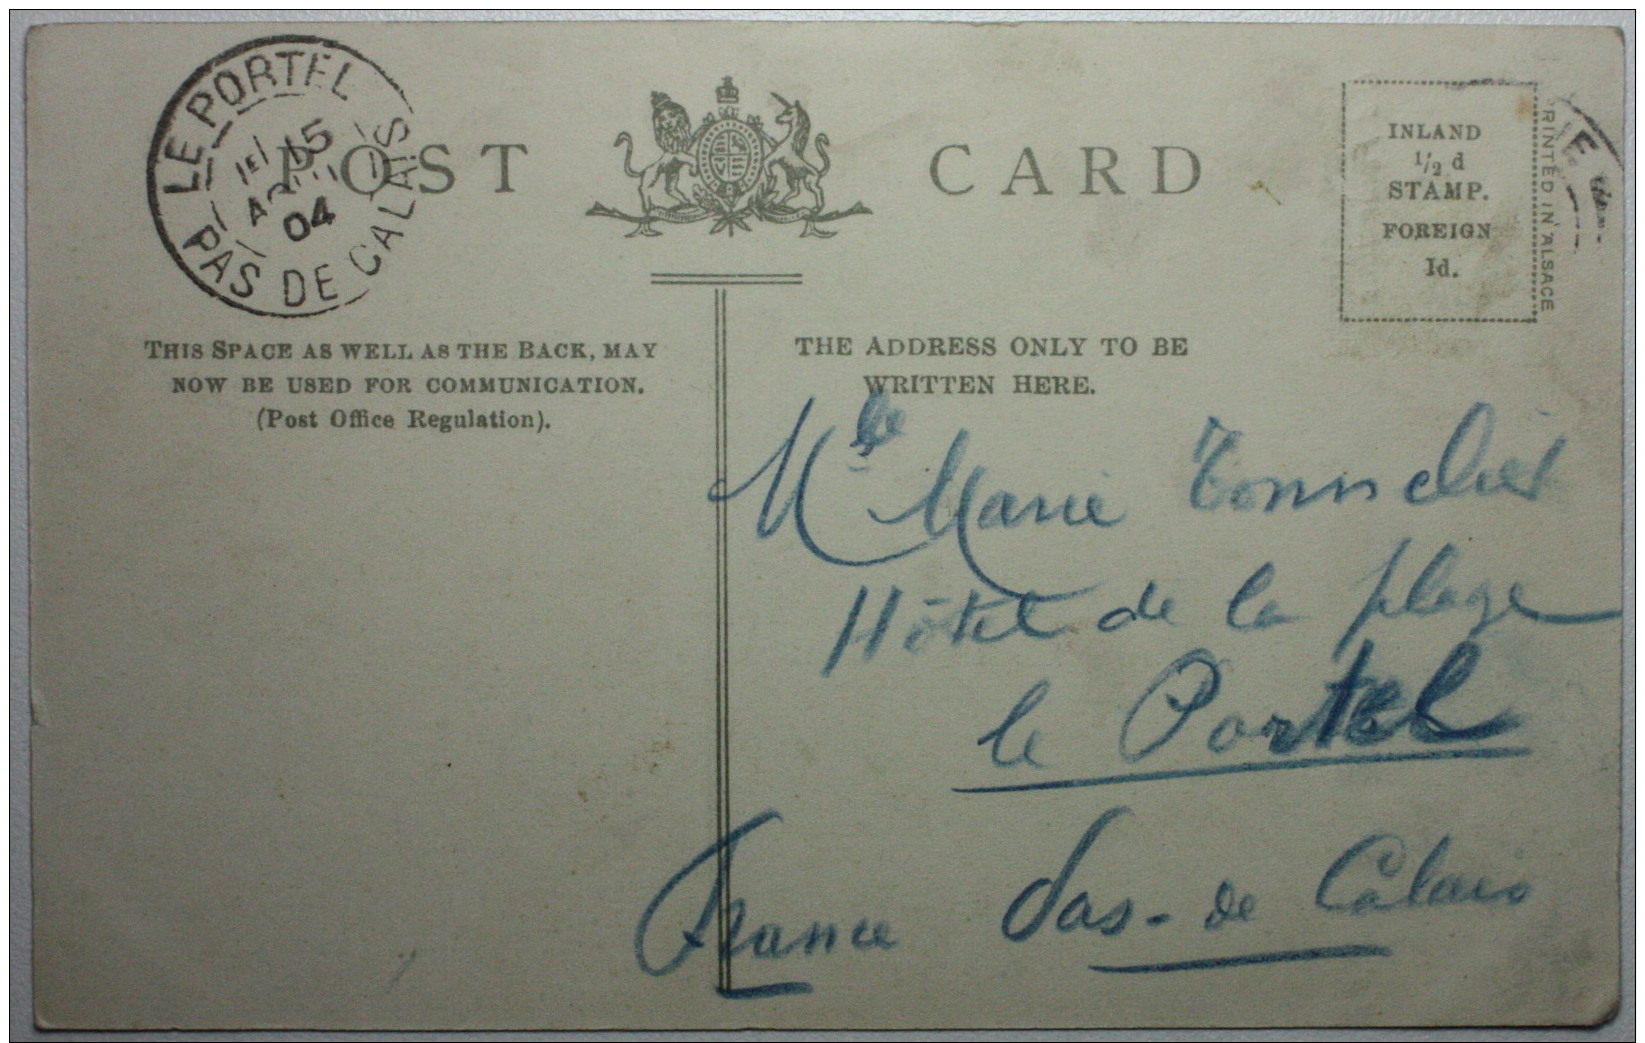 LE PORTEL
15
04
PAS DE CALAIS
POST CARD
INLAND
1/2 d
STAMP.
FOREIGN
1d.
PRINTED IN ALSACE
THIS SPACE AS WELL AS THE BACK, MAY
NOW BE USED FOR COMMUNICATION.
(Post Office Regulation).
THE ADDRESS ONLY TO BE
WRITTEN HERE.
Mlle Marie
Hôtel de la plage
le Portel
France Pas-de Calais